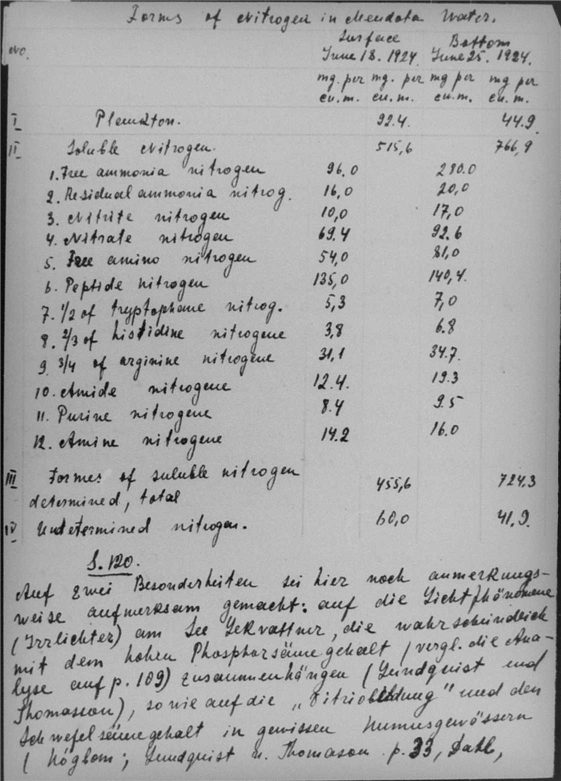 Forms of Nitrogen in Mendota Water.
No. Surface Bottom
June 18. 1924. June 25. 1924.
mg. per mg. per mg per mg per
cu.m. cu.m. cu.m. cu.m.
I Plankton. 92.4. 44.9.
II Soluble Nitrogen. 515,6 766,9
1. Free ammonia nitrogen 96.0 280.0
2. Residual ammonia nitrog. 16,0 20,0
3. Nitrite nitrogen 10,0 17,0
4. Nitrate nitrogen 69.4 92.6
5. Free amino nitrogen 54,0 81,0
6. Peptide nitrogen 135,0 140,4.
7. 1/2 of tryptophane nitrog. 5,3 7,0
8. 2/3 of histidine nitrogene 3,8 6.8
9. 3/4 of arginine nitrogene 31,1 34.7.
10. Amide nitrogene 12.4. 19.3
11. Purine nitrogene 8.4 9.5
12. Amine nitrogene 14.2 16.0
III Formes of suluble nitrogen
determined, total 455,6 724.3
IV Undetermined nitrogen. 60,0 41,9.
S. 120.
Auf zwei Besonderheiten sei hier noch anmerkungs-
weise aufmerksam gemacht: auf die Lichtphänomene
(Irrlichter) am See Lekvattner, die wahrscheinlich
mit dem hohen Phosphorsäuregehalt (vergl. die Ana-
lyse auf p. 109) zusammenhängen (Lundquist und
Thomasson), sowie auf die „Vitriolbildung" und den
Schwefelsäuregehalt in gewissen Humusgewässern
(Högbom; Lundquist u. Thomasson p. 33, Dahl,